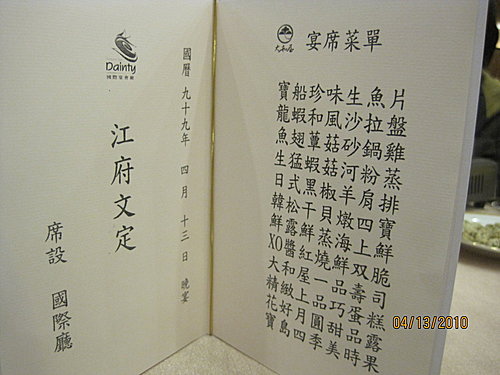 Dainty
國際宴會廳
國曆 九十九年 四月 十三日 晚宴
江府文定
席設 國際廳
大和屋
宴席菜單
寶船珍味生魚片
龍蝦和風沙拉盤
魚翅蕈菇砂鍋雞
生猛蝦菇河粉蒸
日式黑椒羊肩排
韓松干貝燉四寶
鮮露鮮蒸海上鮮
XO醬紅燒鮮双脆
大和屋一品壽司
精緻上品巧蛋糕
花好月圓甜品露
寶島四季美時果
04/13/2010